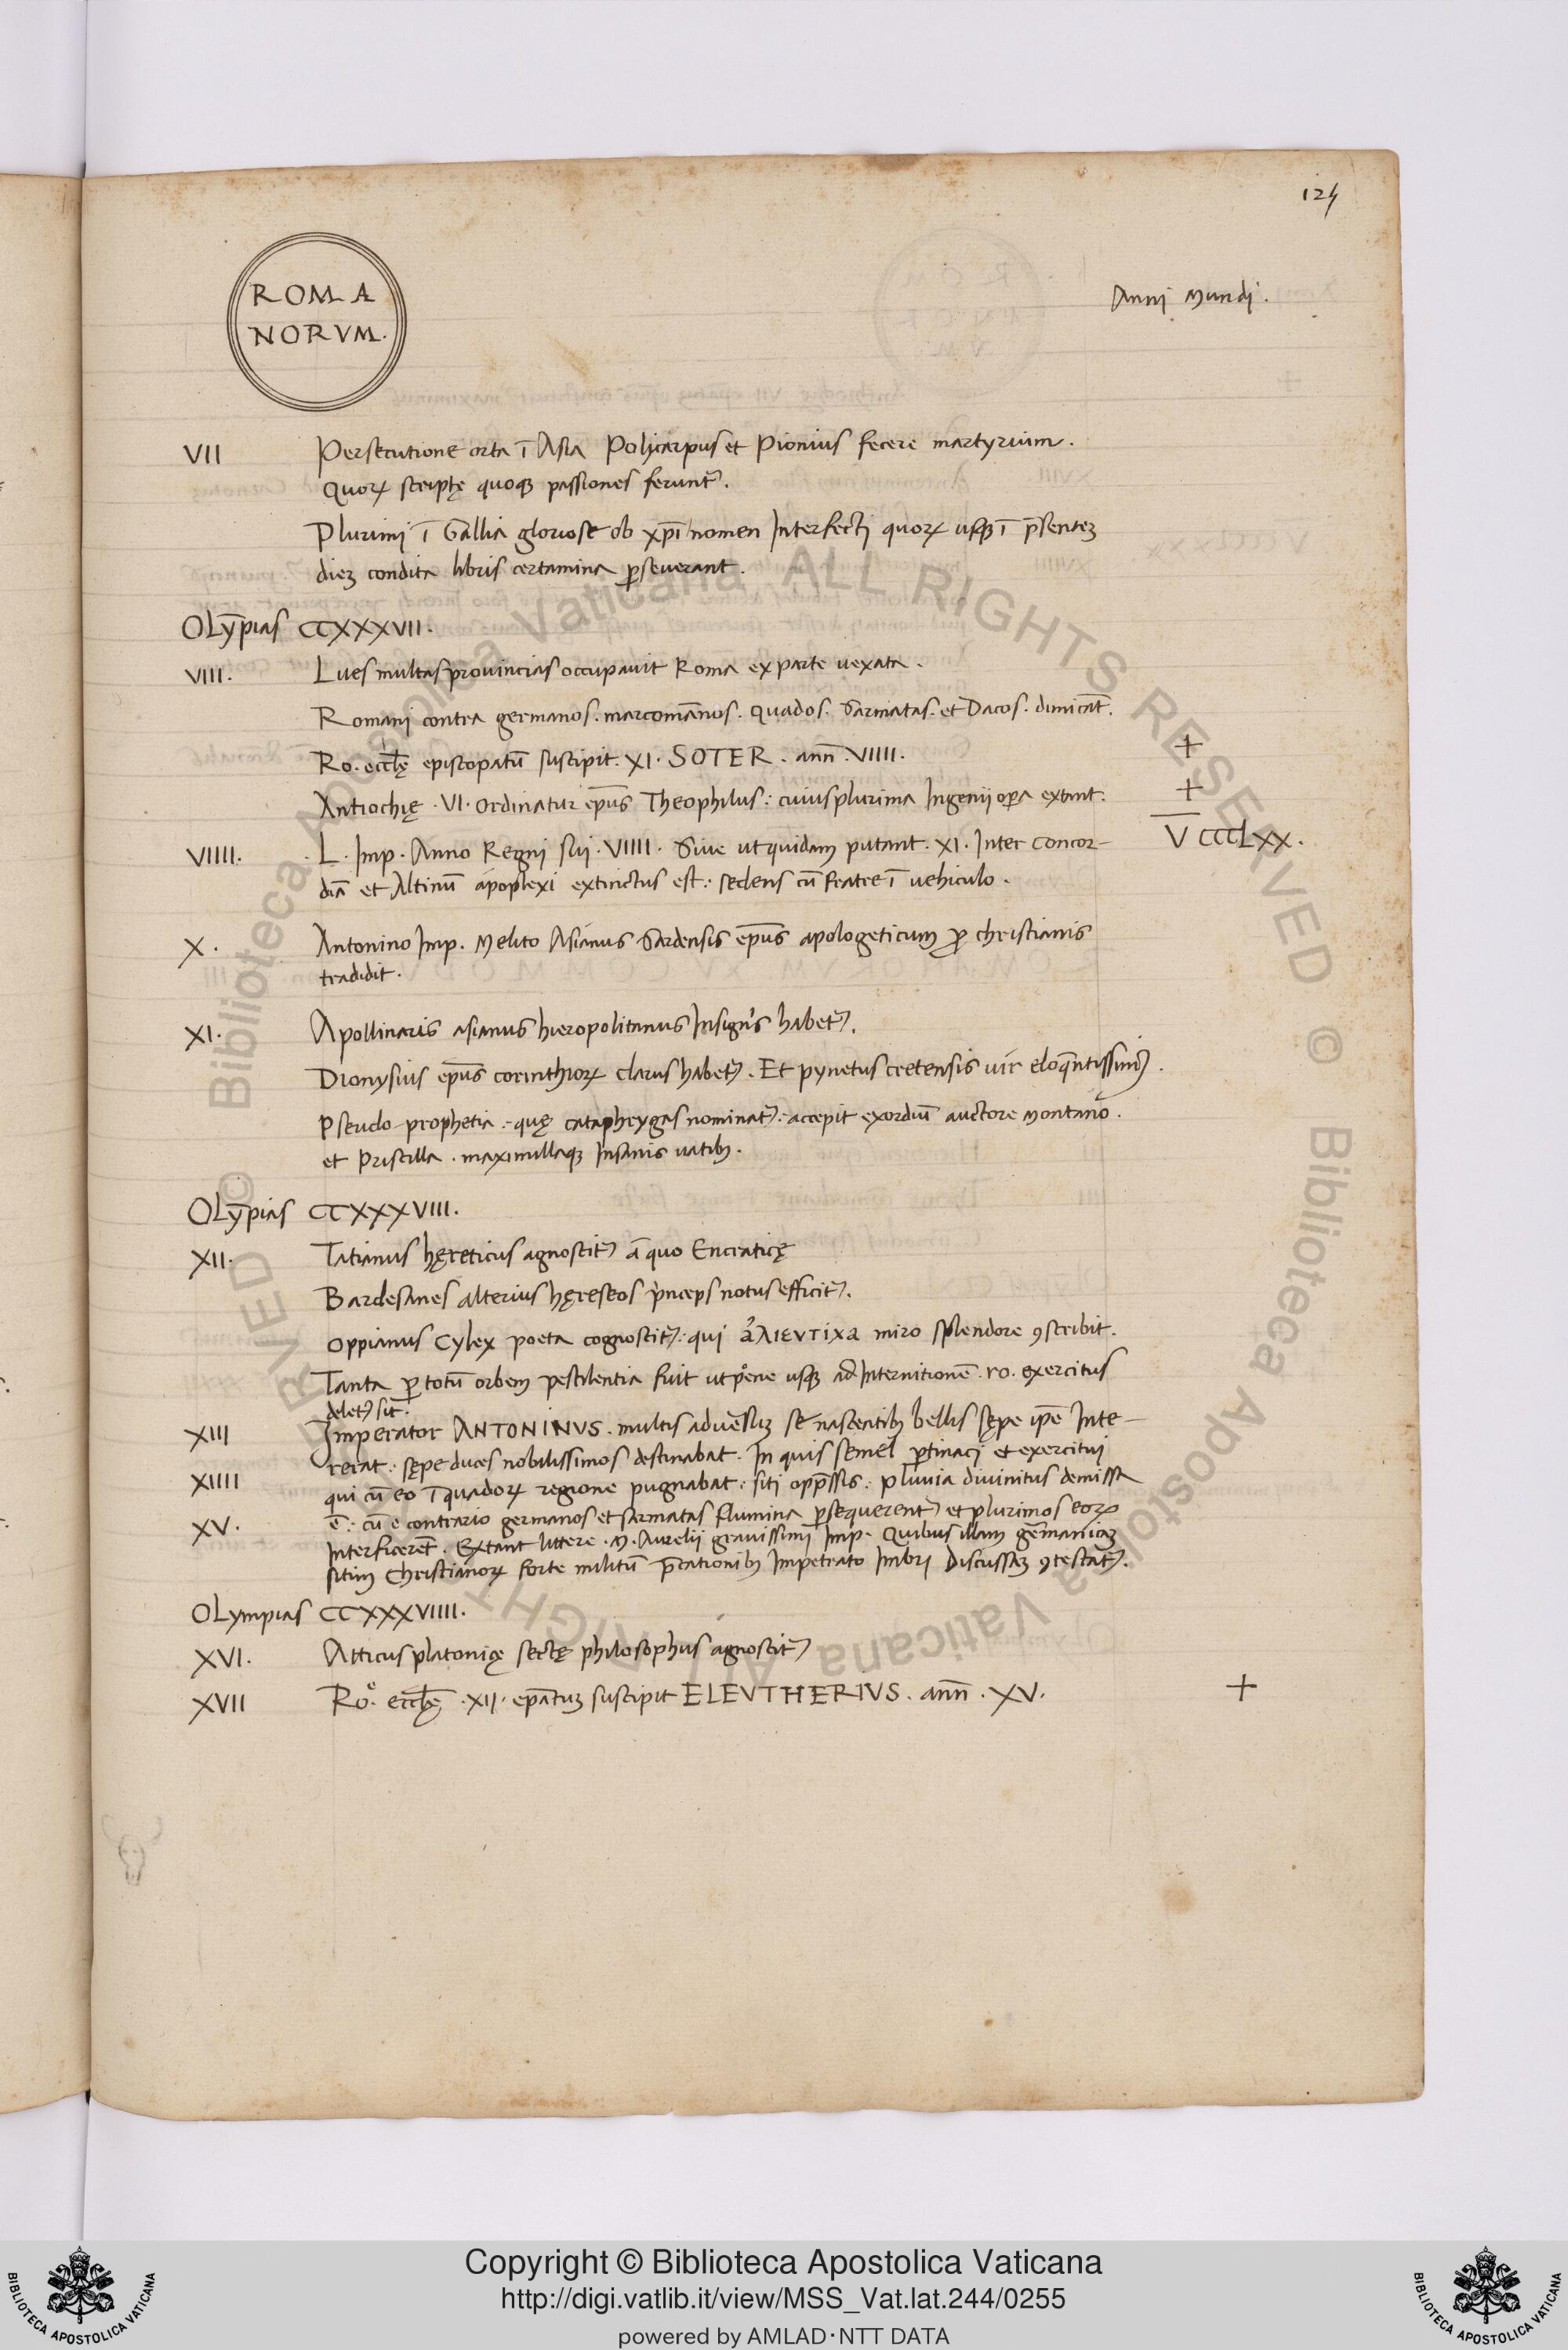 124
ROMA
NORVM.
Anni Mundi.
VII Persecutione orta ī Asia Policarpus et Pionius fecere martyrium.
Quoꝝ scriptę quoqꝫ passiones ferunt᷒.
Plurimi ī Gallia gloriose ob xp̄i nomen Interfecti quoꝝ usqꝫ ī p̄senteꝫ
dieꝫ condita libris certamina ꝑseuerant.
OLȳpias CCXXXVII.
VIII. Lues multas prouincias occupauit Roma ex parte uexata.
Romani contra germanos. marcomānos. Quados. Sarmatas. et Dacos. dimicāt.
Ro. eccl̄ę episcopatū suscipit. XI. SOTER. ann̄. VIIII. +
Antiochię. VI. Ordinatur ep̄us Theophilus: cuius plurima Ingenii oꝑa extant. +
V̄ CCCLXX.
VIIII. L. Imp. Anno Regni sui. VIIII. Siue ut quidam putant. XI. Inter Concor-
diā et Altinū apoplexi extinctus est: sedens cū fratre ī uehiculo.
X. Antonino Imp. Melito Asianus Sardensis ep̄us apologeticum ꝓ christianis
tradidit.
XI. Apollinaris asianus hieropolitanus Insignis habet᷒.
Dionysius ep̄us corinthioꝝ clarus habet᷒. Et pynetus cretensis uir eloq̄ntissim᷒.
Pseudo-prophetia: quę cataphrygas nominat᷒: accepit exordiū auctore Montano.
et Priscilla. maximillaqꝫ Insanis uatibꝫ.
OLȳpias CCXXXVIII.
XII. Tatianus hęreticus agnoscit᷒ a quo Encraticę
Bardesanes alterius hęreseos princeps notus efficit᷒.
Oppianus Cylex poeta cognoscit᷒: qui ἁλιευτιχα miro splendore ꝯscribit.
Tanta ꝑ totū orbem pestilentia fuit ut pene usqꝫ ad Internitionē. ro. exercitus
delet᷒ sit.
XIII Imperator ANTONINVS. multis aduersuꝫ se nascentibꝫ bellis sępe ip̄e Inte-
rerat: sępe duces nobilissimos destinabat. In quis semel ꝑtinaci et exercitui
XIIII qui cū eo ī quadoꝝ regione pugnabat: siti opp̄ssis: pluuia diuinitus demissa
XV. ē: cū e contrario germanos et sarmatas flumina ꝑsequerent᷒ et plurimos eoꝝ
Interficeret̄. Extant littere. M. Aurelii grauissimi Imp. Quibus illam gēmanicaꝫ
sitim Christianoꝝ forte militū p̄cationibꝫ Impetrato Imbri Discussaꝫ ꝯtestat᷒.
OLympias CCXXXVIIII.
XVI. Atticus platonicę sectę philosophus agnoscit᷒
XVII Ro. eccl̄ę. XII. ep̄atuꝫ suscipit ELEVTHERIVS. ann̄. XV. +
Copyright © Biblioteca Apostolica Vaticana
http://digi.vatlib.it/view/MSS_Vat.lat.244/0255
powered by AMLAD·NTT DATA
BIBLIOTECA APOSTOLICA VATICANA
BIBLIOTECA APOSTOLICA VATICANA